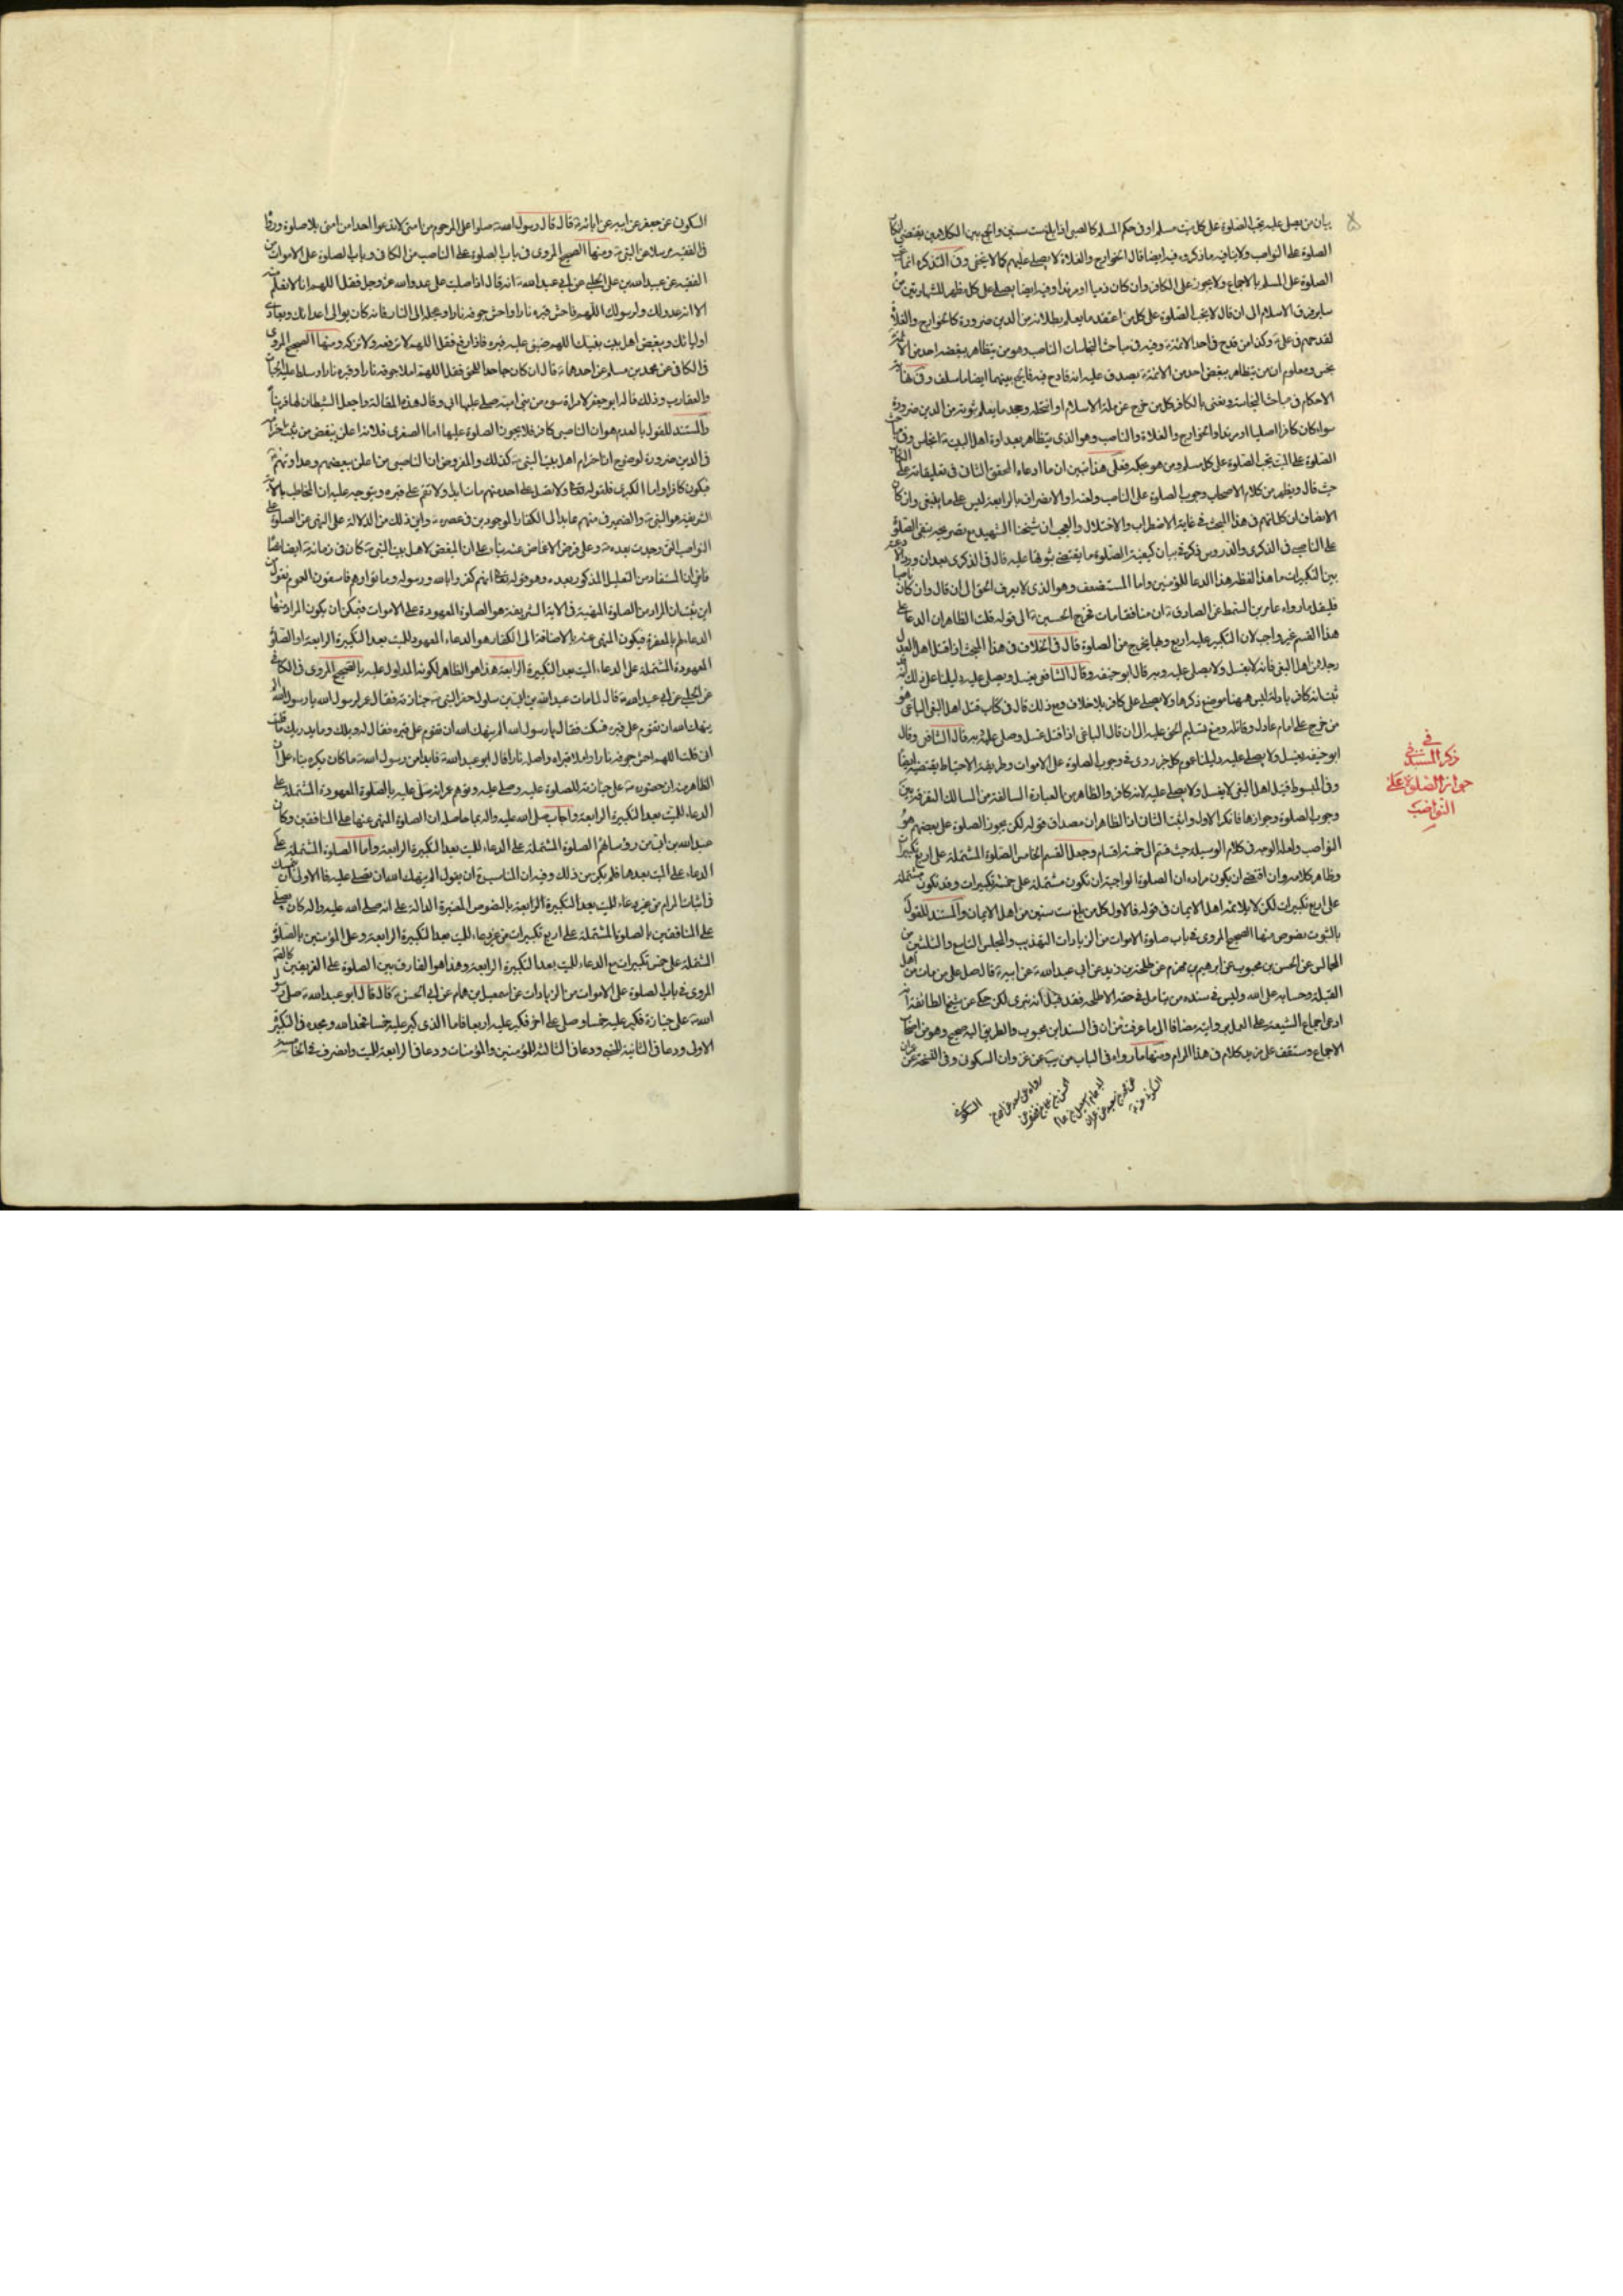 بيان من يصلى عليه يجب الصلوة على كل ميت مسلم او فى حكم المسلم كالصبى اذا بلغ ست سنين والجمع بين الكلامين يقتضى
الصلوة على النواصب ولا ينافيه ما ذكروه فيه ايضا قال الخوارج والغلاة لا يصلى عليهم كما لا يخفى وفى التذكره انما تجب
الصلوة على المسلم بالاجماع ولا يجوز على الكافر وان كان ذميا او مرتدا وفيه ايضا يصلى على كل مظهر للشهادتين من
ساير فرق الاسلام الى ان قال لا يجب الصلوة على كل من اعتقد ما يعلم بطلانه من الدين ضرورة كالخوارج والغلاة
لقدحهم فى على وكذا من قدح فى احد الائمة وفيه فى مباحث النجاسات الناصب وهو من يتظاهر ببغضه احد من الائمة
نجس ومعلوم ان من يتظاهر ببغض احد من الائمة يصدق عليه انه قادح فيه فالجمع بينهما ايضا ما سلف وفى نهاية
الاحكام فى مباحث النجاسة ونعنى بالكافر كل من خرج عن ملة الاسلام او انتحله وجحد ما يعلم ثبوته من الدين ضرورة
سواء كان كافرا اصليا او مرتدا والخوارج والغلاة والناصب وهو الذى يتظاهر بعداوة اهل البيت انجاس وفى
الصلوة على الميت يجب الصلوة على كل مسلم ومن هو بحكمه فعلى هذا تبين ان ما ادعاه المحقق الثانى فى تعليقاته على
حيث قال ويظهر من كلام الاصحاب وجوب الصلوة على الناصب ولعنه او الانصراف بالرابعة ليس على ما ينبغى وان كان
الانصاف ان كلماتهم فى هذا المبحث فى غاية الاضطراب والاختلال والعجب ان شيخنا الشهيد مع تصريحه بنفى الصلوة
على الناصب فى الذكرى والدروس ذكر فى بيان كيفية الصلوة ما يقتضى ثبوتها عليه قال فى الذكرى بعد ان اورد الادعية
بين التكبيرات ما هذا لفظه هذا الدعا للمؤمنين واما المستضعف وهو الذى لا يعرف الحق الى ان قال وان كان ناصبا
فليقل ما رواه عامر بن السمط عن الصادق ان منافقا مات فخرج الحسين الى قوله قلت الظاهر ان الدعا على
هذا القسم غير واجب لان التكبير عليه اربع وبها يخرج من الصلوة قال فى الخلاف فى هذا المبحث اذا قتل اهل العدل
رجلا من اهل البغى فانه لا يغسل ولا يصلى عليه وبه قال ابو حنيفه وقال الشافعى يغسل ويصلى عليه دليلنا على ذلك انه
ثبت انه كافر بادلة ليس ههنا موضع ذكرها ولا يصلى على كافر بلا خلاف ومع ذلك قال فى كتاب قتل اهل البغى الباغى هو
من خرج على امام عادل وقاتله ومنع تسليم الحق اليه الى ان قال الباغى اذا قتل غسل وصلى عليه وبه قال الشافعى وقال
ابو حنيفه يغسل ولا يصلى عليه دليلنا عموم كل خبر روى فى وجوب الصلوة على الاموات وطريقة الاحتياط يقتضيه ايضا
وفى المبسوط قتيل اهل البغى لا يغسل ولا يصلى عليه لانه كافر والظاهر من العبارة السالفة من السالك التفرقة بين
وجوب الصلوة وجوازها فانكر الاول واثبت الثانى اذ الظاهر ان مصداق قوله لكن يجوز الصلوة على بعضهم هو
النواصب ولعله الوجه فى كلام الوسيله حيث قسم الى خمسة اقسام وجعل القسم الخامس الصلوة المشتملة على اربع تكبيرات
وظاهر كلامه وان اقتضى ان يكون مراده ان الصلوة الواجبة ان تكون مشتملة على خمسة تكبيرات وقد تكون مشتملة
على اربع تكبيرات لكن لا يلائمه اهل الايمان فى قوله فالاول كل من بلغ ست سنين من اهل الايمان والمستند للقول
بالثبوت نصوص منها الصحيح المروى فى باب صلوة الاموات من الزيادات التهذيب والمجلس التاسع والثلثين من
المجالس عن الحسن بن محبوب عن ابرهيم بن مهزم عن طلحة بن زيد عن ابى عبد الله عن ابيه قال صل على من مات من اهل
القبلة وحسابه على الله وليس فى سنده من يتامل فى حقه الا طلحه فقد قيل انه بترى لكن حكى عن شيخ الطائفة انه
ادعى اجماع الشيعة على العمل بروايته مضافا الى ما عرفت من ان فى السند ابن محبوب والطريق اليه صحيح وهو من اصحاب
الاجماع وستقف على مزيد كلام فى هذا المرام ومنها ما رواه فى الباب من يب عن غزوان السكونى وفى النسخة عن
فى
ذكر المستند فى
جواز الصلوة على
النواصب
السكونى
السكونى عن جعفر عن ابيه عن ابائه قال قال رسول الله صلوا على المرجوم من امتى لا تدعوا احدا من امتى بلا صلوة
فى الفقيه مرسلا عن النبى ومنها الصحيح المروى فى باب الصلوة على الناصب من الكافى وباب الصلوة على الاموات من
الفقيه عن عبيد الله بن على الحلبى عن ابى عبد الله انه قال اذا صليت على عدو الله عز وجل فقل اللهم انا لا نعلم منه
الا انه عدو لك ولرسولك اللهم فاحش قبره نارا واحش جوفه نارا وعجله الى النار فانه كان يوالى اعدائك ويعادى
اوليائك ويبغض اهل بيت نبيك اللهم ضيق عليه قبره فاذا رفع فقل اللهم لا ترفعه ولا تزكه ومنها الصحيح المروى
فى الكافى عن محمد بن مسلم عن احدهما قال ان كان جاحدا للحق فقل اللهم املا جوفه نارا وقبره نارا وسلط عليه الحيات
والعقارب وذلك قاله ابو جعفر لامراة سوء من بنى امية صلى عليها ابى وقال هذه المقالة واجعل الشيطان لها قرينا
والمستند للقول بالعدم هو ان الناصبى كافر فلا يجوز الصلوة عليها اما الصغرى فلانه اعلن ببغض من ثبت احترامه
فى الدين ضرورة لوضوح ان احترام اهل بيت النبى كذلك والمفروض ان الناصبى من اعلن ببغضهم وعداوتهم
فيكون كافرا واما الكبرى فلقوله تعالى ولا تصل على احد منهم مات ابدا ولا تقم على قبره ويتوجه عليه ان المخاطب بالاية
الشريفة هو النبى والضمير فى منهم عايد الى الكفار الموجودين فى عصره واين ذلك من الدلالة على النهى عن الصلوة على
النواصب التى وجدت بعده وعلى فرض الاغماض عنه بناء على ان المبغض لاهل بيت النبى كان فى زمانه ايضا
فان المستفاد من التعليل المذكور بعده وهو قوله تعالى انهم كفروا بالله ورسوله وماتوا وهم فاسقون العموم نقول
اين ثبت ان المراد من الصلوة المنهية فى الاية الشريفة هو الصلوة المعهودة على الاموات فيمكن ان يكون المراد منها
الدعاء لهم بالمغفرة فيكون المنهى عنه بالاضافة الى الكفار هو الدعاء المعهود للميت بعد التكبيرة الرابعة او الصلوة
المعهودة المشتملة على الدعاء للميت بعد التكبيرة الرابعة هذا هو الظاهر لكونه المدلول عليه بالصحيح المروى فى الكافى
عن الحلبى عن ابى عبد الله قال لما مات عبد الله بن ابى بن سلول حضر النبى جنازته فقال عمر لرسول الله يا رسول الله الم
ينهك الله ان تقوم على قبره فسكت فقال يا رسول الله الم ينهك الله ان تقوم على قبره فقال له ويلك وما يدريك ما قلت
انى قلت اللهم احش جوفه نارا واملا قبره نارا واصله نارا قال ابو عبد الله فابدا من رسول الله ما كان يكره بناء على ان
الظاهر من ان حضوره على جنازته للصلوة عليه وصلى عليه وتوهم عمر انه صلى عليه بالصلوة المعهودة المشتملة على
الدعاء للميت بعد التكبيرة الرابعة واجاب صلى الله عليه واله بما حاصله ان الصلوة المنهى عنها على المنافقين وكان
عبد الله بن ابى من رؤسائهم الصلوة المشتملة على الدعاء للميت بعد التكبيرة الرابعة واما الصلوة المشتملة على
الدعاء على الميت بعدها فلم يكن من ذلك وفيه ان المناسب ان يقول الم ينهك الله ان تصلى عليه فالاولى ان يتمسك
فى اثبات المرام من غير دعاء للميت بعد التكبيرة الرابعة بالنصوص المعتبرة الدالة على انه صلى الله عليه واله كان يصلى
على المنافقين بالصلوة المشتملة على اربع تكبيرات من غير دعاء للميت بعد التكبيرة الرابعة وعلى المؤمنين بالصلوة
المشتملة على خمس تكبيرات مع الدعاء للميت بعد التكبيرة الرابعة وهذا هو الفارق بين الصلوة على الفريقين كالصحيح
المروى فى باب الصلوة على الاموات من الزيادات عن اسمعيل بن همام عن ابى الحسن قال قال ابو عبد الله صلى رسول
الله على جنازة فكبر عليه خمسا وصلى على اخر فكبر عليه اربعا فاما الذى كبر عليه خمسا فحمد الله ومجده فى التكبيرة
الاولى ودعا فى الثانية للنبى ودعا فى الثالثة للمؤمنين والمؤمنات ودعا فى الرابعة للميت وانصرف فى الخامسة